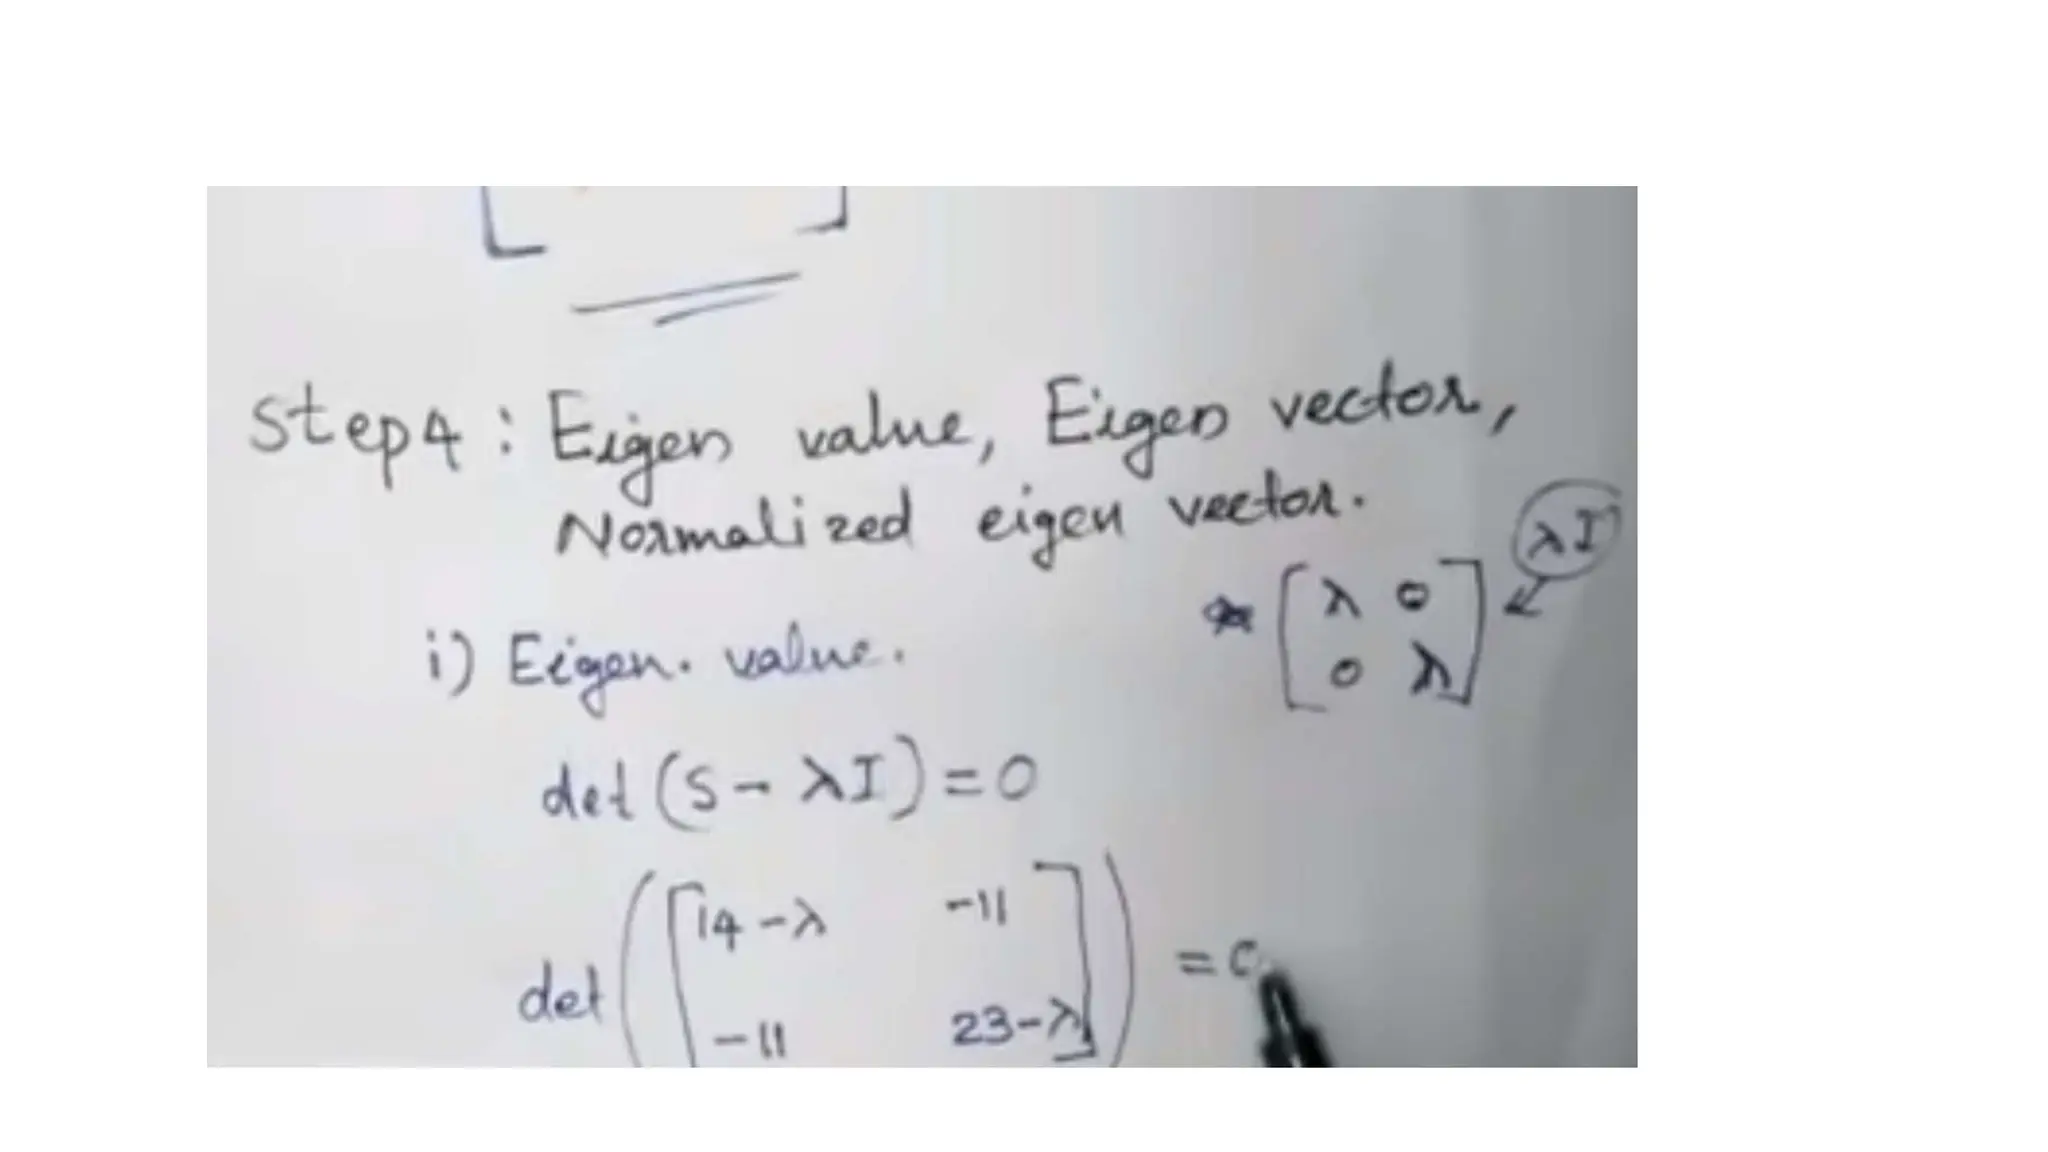 Step4 : Eigen value, Eigen vector,
Normalized eigen vector.
λI
[λ 0
0 λ]
i) Eigen. value.
det (S - λI) = 0
det ([14-λ -11
-11 23-λ]) = 0